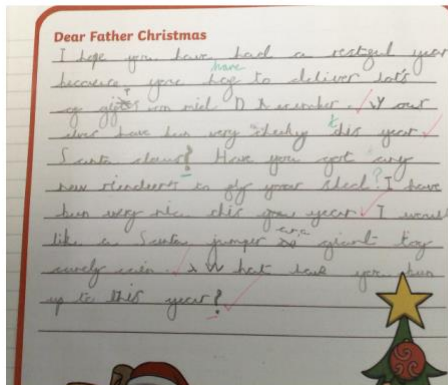 Dear Father Christmas
I hope you have had a restful year
have
because you hof to deliver lot's
of gifts on mid D December. Your
elves have bun very cheeky this year
Santa claus? Have you got any
new riendeers to fly your sled? I have
bun very nic this year I would
like a Santa jumper and giant toy
What have you bun
up to this year?